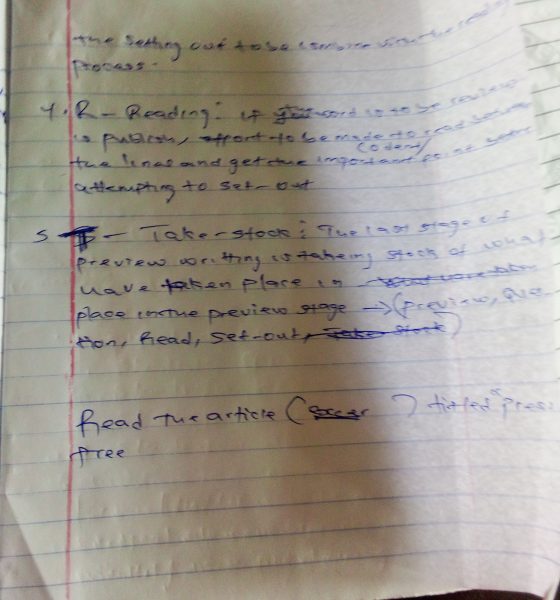 the setting out to be
process.
4. R - Reading: if word is to be review
is publish, effort to be made to read
(oden)
the lines and get the important point
attempting to set-out
5 - Take-stock: The last stage of
preview writting is takeing stock of what
have taken place in
place in the preview stage → (preview, Que
tion, Read, set-out, Take stock)
Read the article ( ) titled "press
free